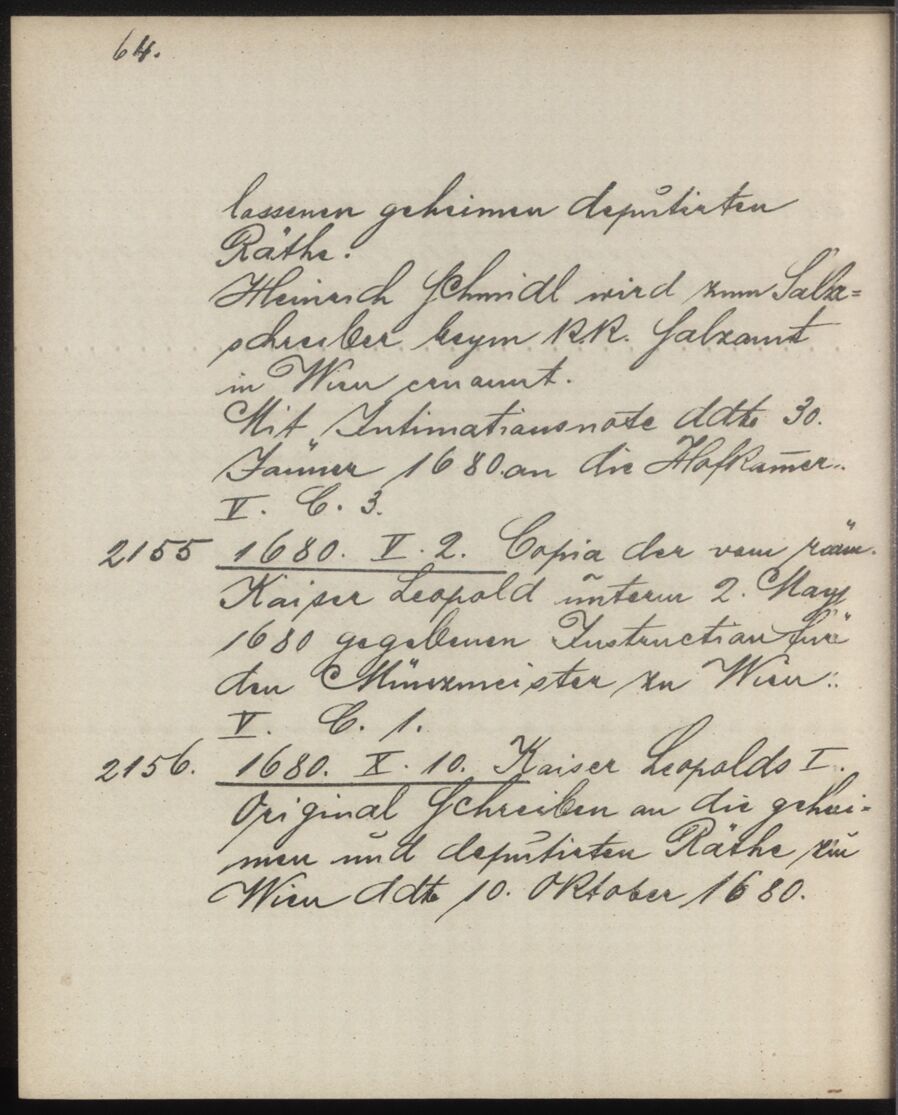 64.
lassenen geheimen deputirten
Räthe.
Heinrich Schmidl wird zum Salz=
schreiber beym k.k. Salzamt
in Wien ernannt.
Mit Intimationsnote ddto 30.
Jänner 1680 an die Hofkam̅er.
V. C. 3.
2155 1680. V. 2. Copia der vom röm.
Kaiser Leopold unterm 2. May
1680 gegebenen Instruction für
den Münzmeister zu Wien.
V. C. 1.
2156. 1680. X. 10. Kaiser Leopolds I.
Original Schreiben an die gehei=
men und deputirten Räthe zu
Wien ddto 10. Oktober 1680.